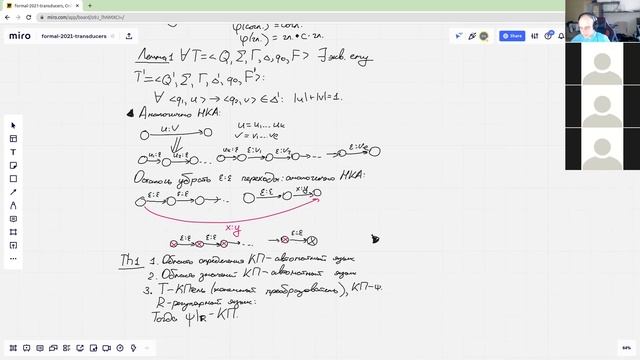 miro.com/app/board/
miro
formal-2021-transducers
ψ(согл.) = согл.
ψ(гл.) = гл. • С • гл.
Лемма 1 ∀ T = <Q, Σ, Γ, Δ, q₀, F> ∃ экв. ему
T' = <Q', Σ, Γ, Δ', q₀, F'>:
∀ <q₁, u> → <q₂, v> ∈ Δ': |u|+|v|=1.
◀ Аналогично НКА:
u:v
u = u₁...uₖ
v = v₁...vₑ
u₁:ε u₂:ε ... uₖ:ε ε:v₁ ε:v₂ ... ε:vₑ
Осталось убрать ε:ε переходы: аналогично НКА:
ε:ε ε:ε ... ε:ε x:y
x:y
ε:ε ε:ε ε:ε
Th1 1. Область определения КП - автоматный язык
2. Область значений КП - автоматный язык
3. T - КПель (конечный преобразователь), КП - ψ.
R - регулярный язык:
Тогда ψ|R - КП.
64%